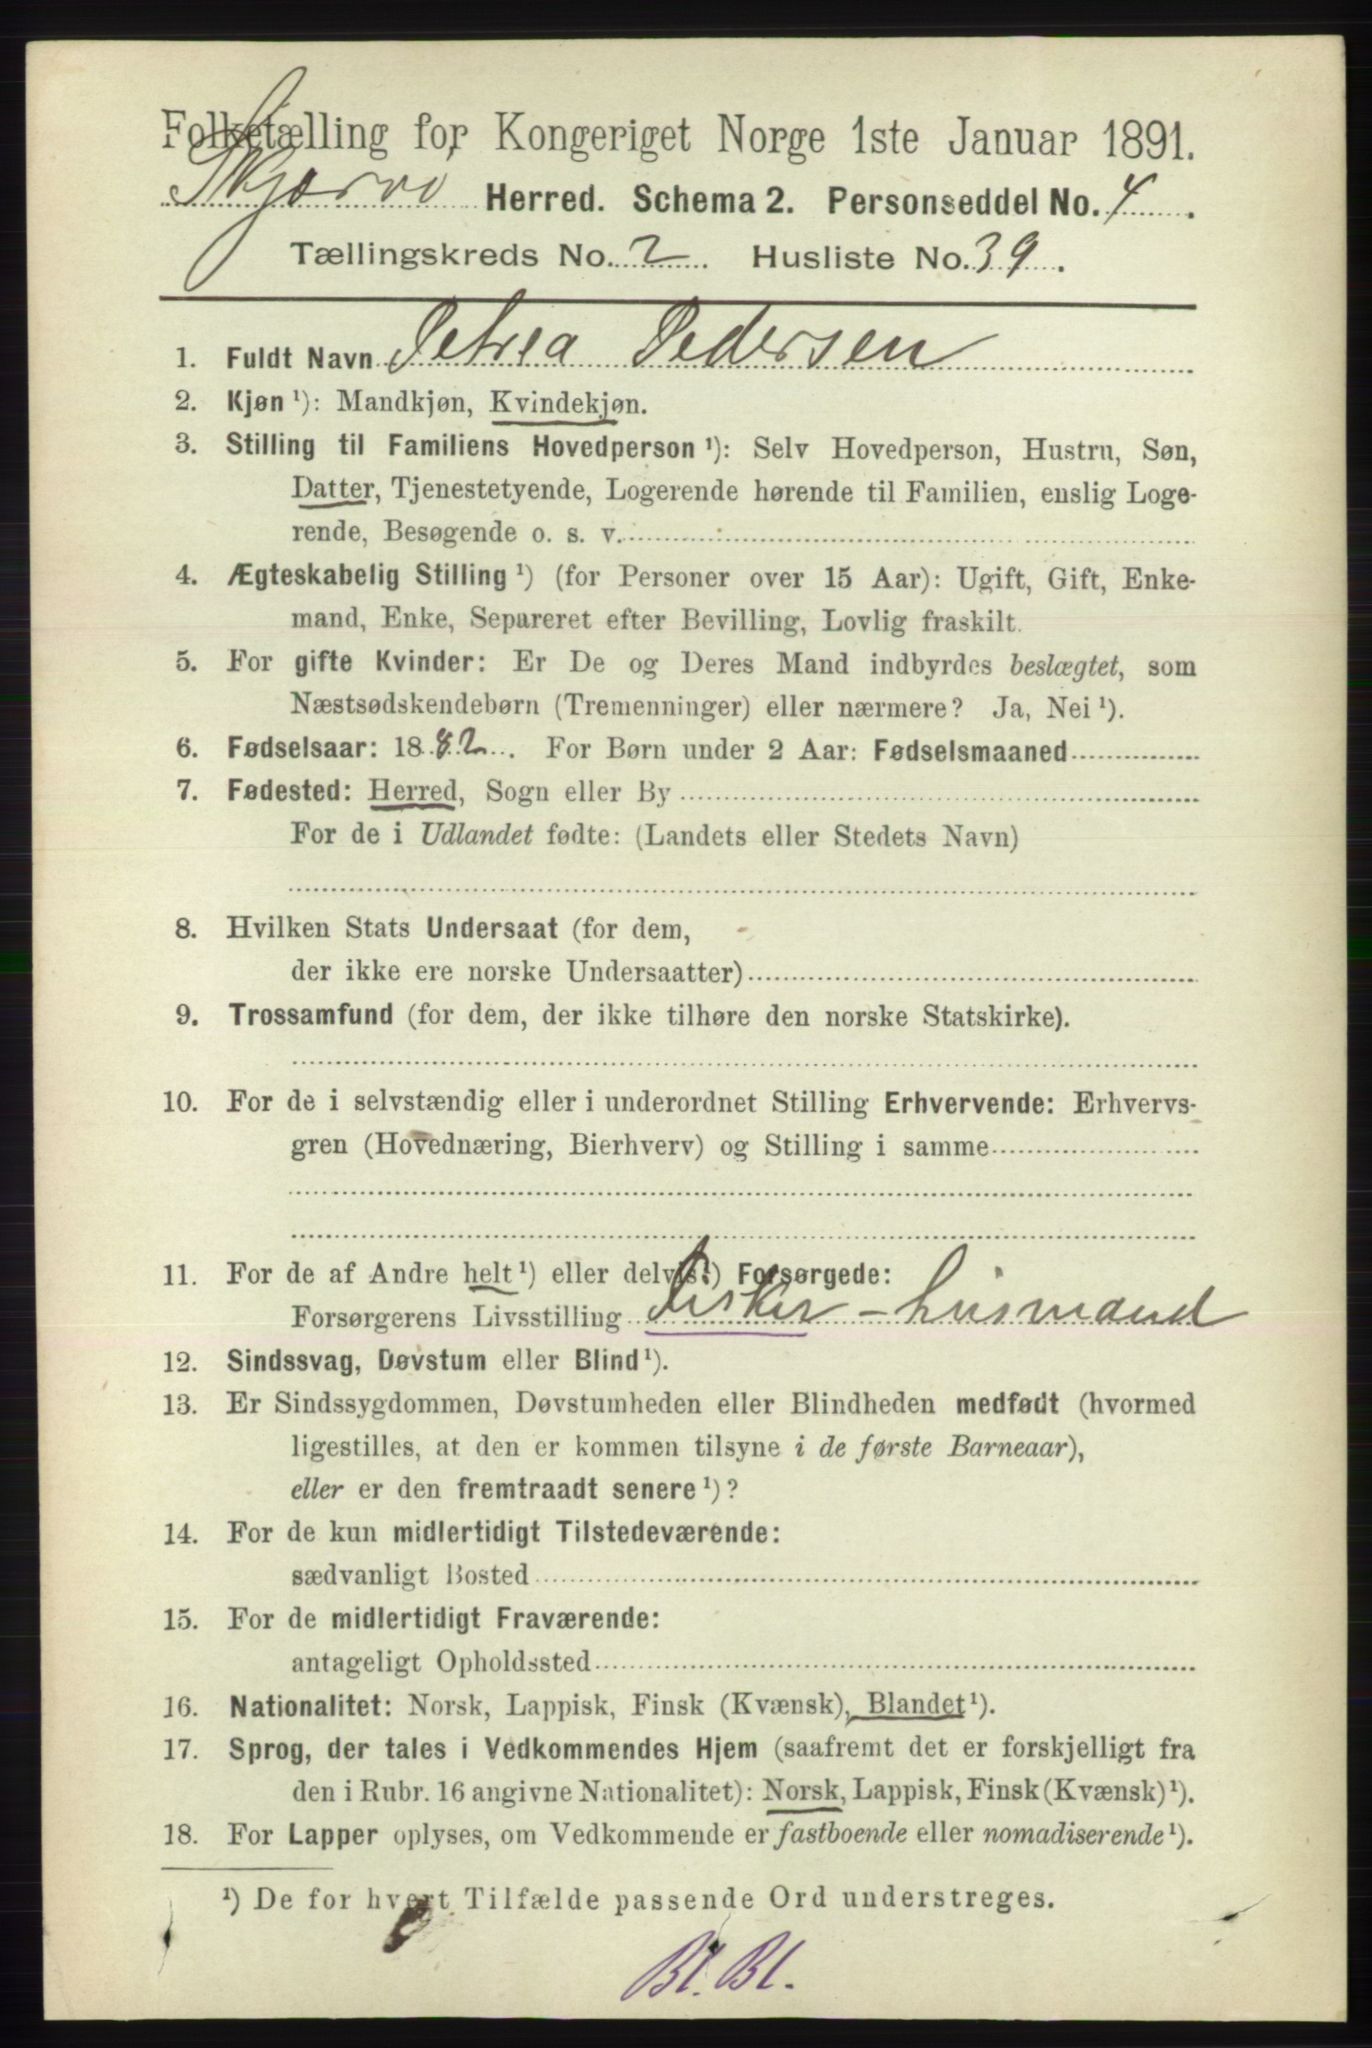 Folketælling for Kongeriget Norge 1ste Januar 1891.
Skjærvö Herred. Schema 2. Personseddel No. 4.
Tællingskreds No. 2. Husliste No. 39.
1. Fuldt Navn Petrea Pedersen
2. Kjøn ¹): Mandkjøn, Kvindekjøn.
3. Stilling til Familiens Hovedperson ¹): Selv Hovedperson, Hustru, Søn,
Datter, Tjenestetyende, Logerende hørende til Familien, enslig Loge-
rende, Besøgende o. s. v.
4. Ægteskabelig Stilling ¹) (for Personer over 15 Aar): Ugift, Gift, Enke-
mand, Enke, Separeret efter Bevilling, Lovlig fraskilt.
5. For gifte Kvinder: Er De og Deres Mand indbyrdes beslægtet, som
Næstsødskendebørn (Tremenninger) eller nærmere? Ja, Nei ¹).
6. Fødselsaar: 1882. For Børn under 2 Aar: Fødselsmaaned
7. Fødested: Herred, Sogn eller By
For de i Udlandet fødte: (Landets eller Stedets Navn)
8. Hvilken Stats Undersaat (for dem,
der ikke ere norske Undersaatter)
9. Trossamfund (for dem, der ikke tilhøre den norske Statskirke).
10. For de i selvstændig eller i underordnet Stilling Erhvervende: Erhvervs-
gren (Hovednæring, Bierhverv) og Stilling i samme
11. For de af Andre helt ¹) eller delvis ¹) Forsørgede:
Forsørgerens Livsstilling Fisker - husmand
12. Sindssvag, Døvstum eller Blind ¹).
13. Er Sindssygdommen, Døvstumheden eller Blindheden medfødt (hvormed
ligestilles, at den er kommen tilsyne i de første Barneaar),
eller er den fremtraadt senere ¹)?
14. For de kun midlertidigt Tilstedeværende:
sædvanligt Bosted
15. For de midlertidigt Fraværende:
antageligt Opholdssted
16. Nationalitet: Norsk, Lappisk, Finsk (Kvænsk), Blandet ¹).
17. Sprog, der tales i Vedkommendes Hjem (saafremt det er forskjelligt fra
den i Rubr. 16 angivne Nationalitet): Norsk, Lappisk, Finsk (Kvænsk) ¹).
18. For Lapper oplyses, om Vedkommende er fastboende eller nomadiserende ¹).
¹) De for hvert Tilfælde passende Ord understreges.
Bl. Bl.